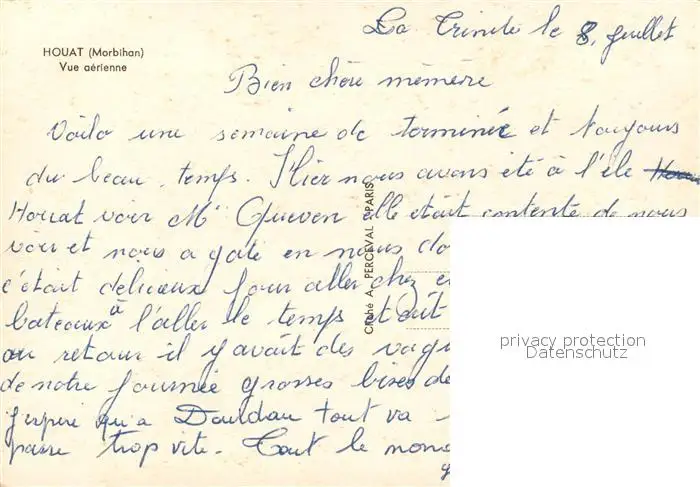 La Trinité le 8, juillet
HOUAT (Morbihan)
Vue aérienne
Bien chère mémère
Voila une semaine de terminée et toujours
du beau temps. Hier nous avons été à l'île
Houat voir Me Gueven elle était contente de nous
voir et nous a gaté en nous do
c'était délicieux pour aller chez e
bateaux à l'aller le temps était
au retour il y avait des vagu
de notre journée grosses bises de
j'espère qu'a Dourdan tout va
passe trop vite. Tout le mond
Cliché A. PERCEVAL PARIS
privacy protection
Datenschutz